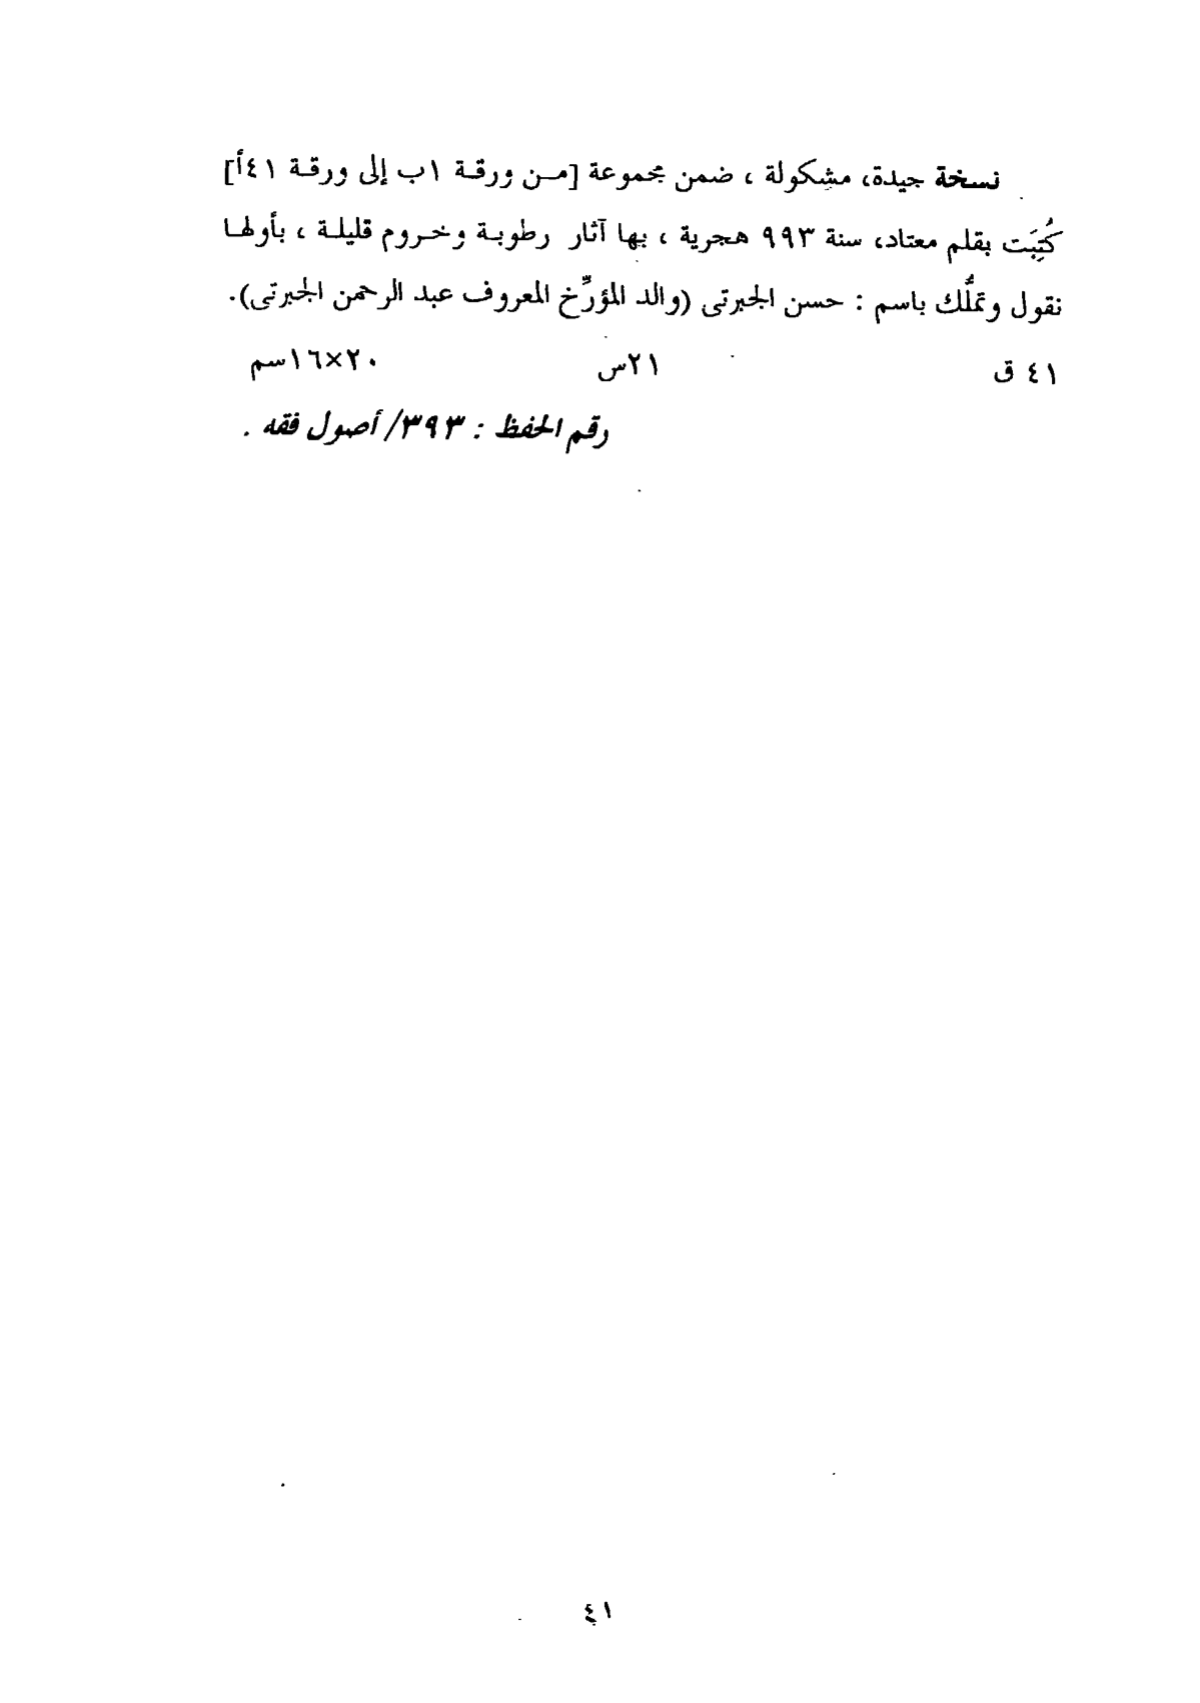 نسخة جيدة، مشكولة ، ضمن مجموعة [من ورقة ١ب إلى ورقة ٤١أ]
كُتِبَت بقلم معتاد، سنة ٩٩٣ هجرية ، بها آثار رطوبة وخروم قليلة ، بأولها
نقول وتملُّك باسم : حسن الجبرتى (والد المؤرِّخ المعروف عبد الرحمن الجبرتى).
٤١ ق ٢١س ١٦×٢٠سم
رقم الحفظ : ٣٩٣/ أصول فقه .
٤١